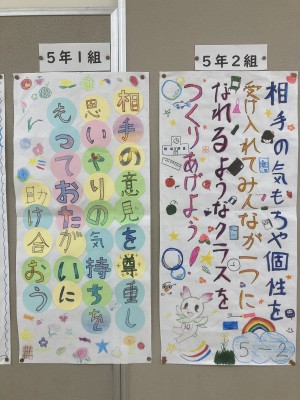 5年1組
相手の意見を尊重し
思いやりの気持ちを
もっておたがいに
助け合おう
5年2組
相手の気もちや個性を
受け入れてみんなが一つに
なれるようなクラスを
つくりあげよう
5-2